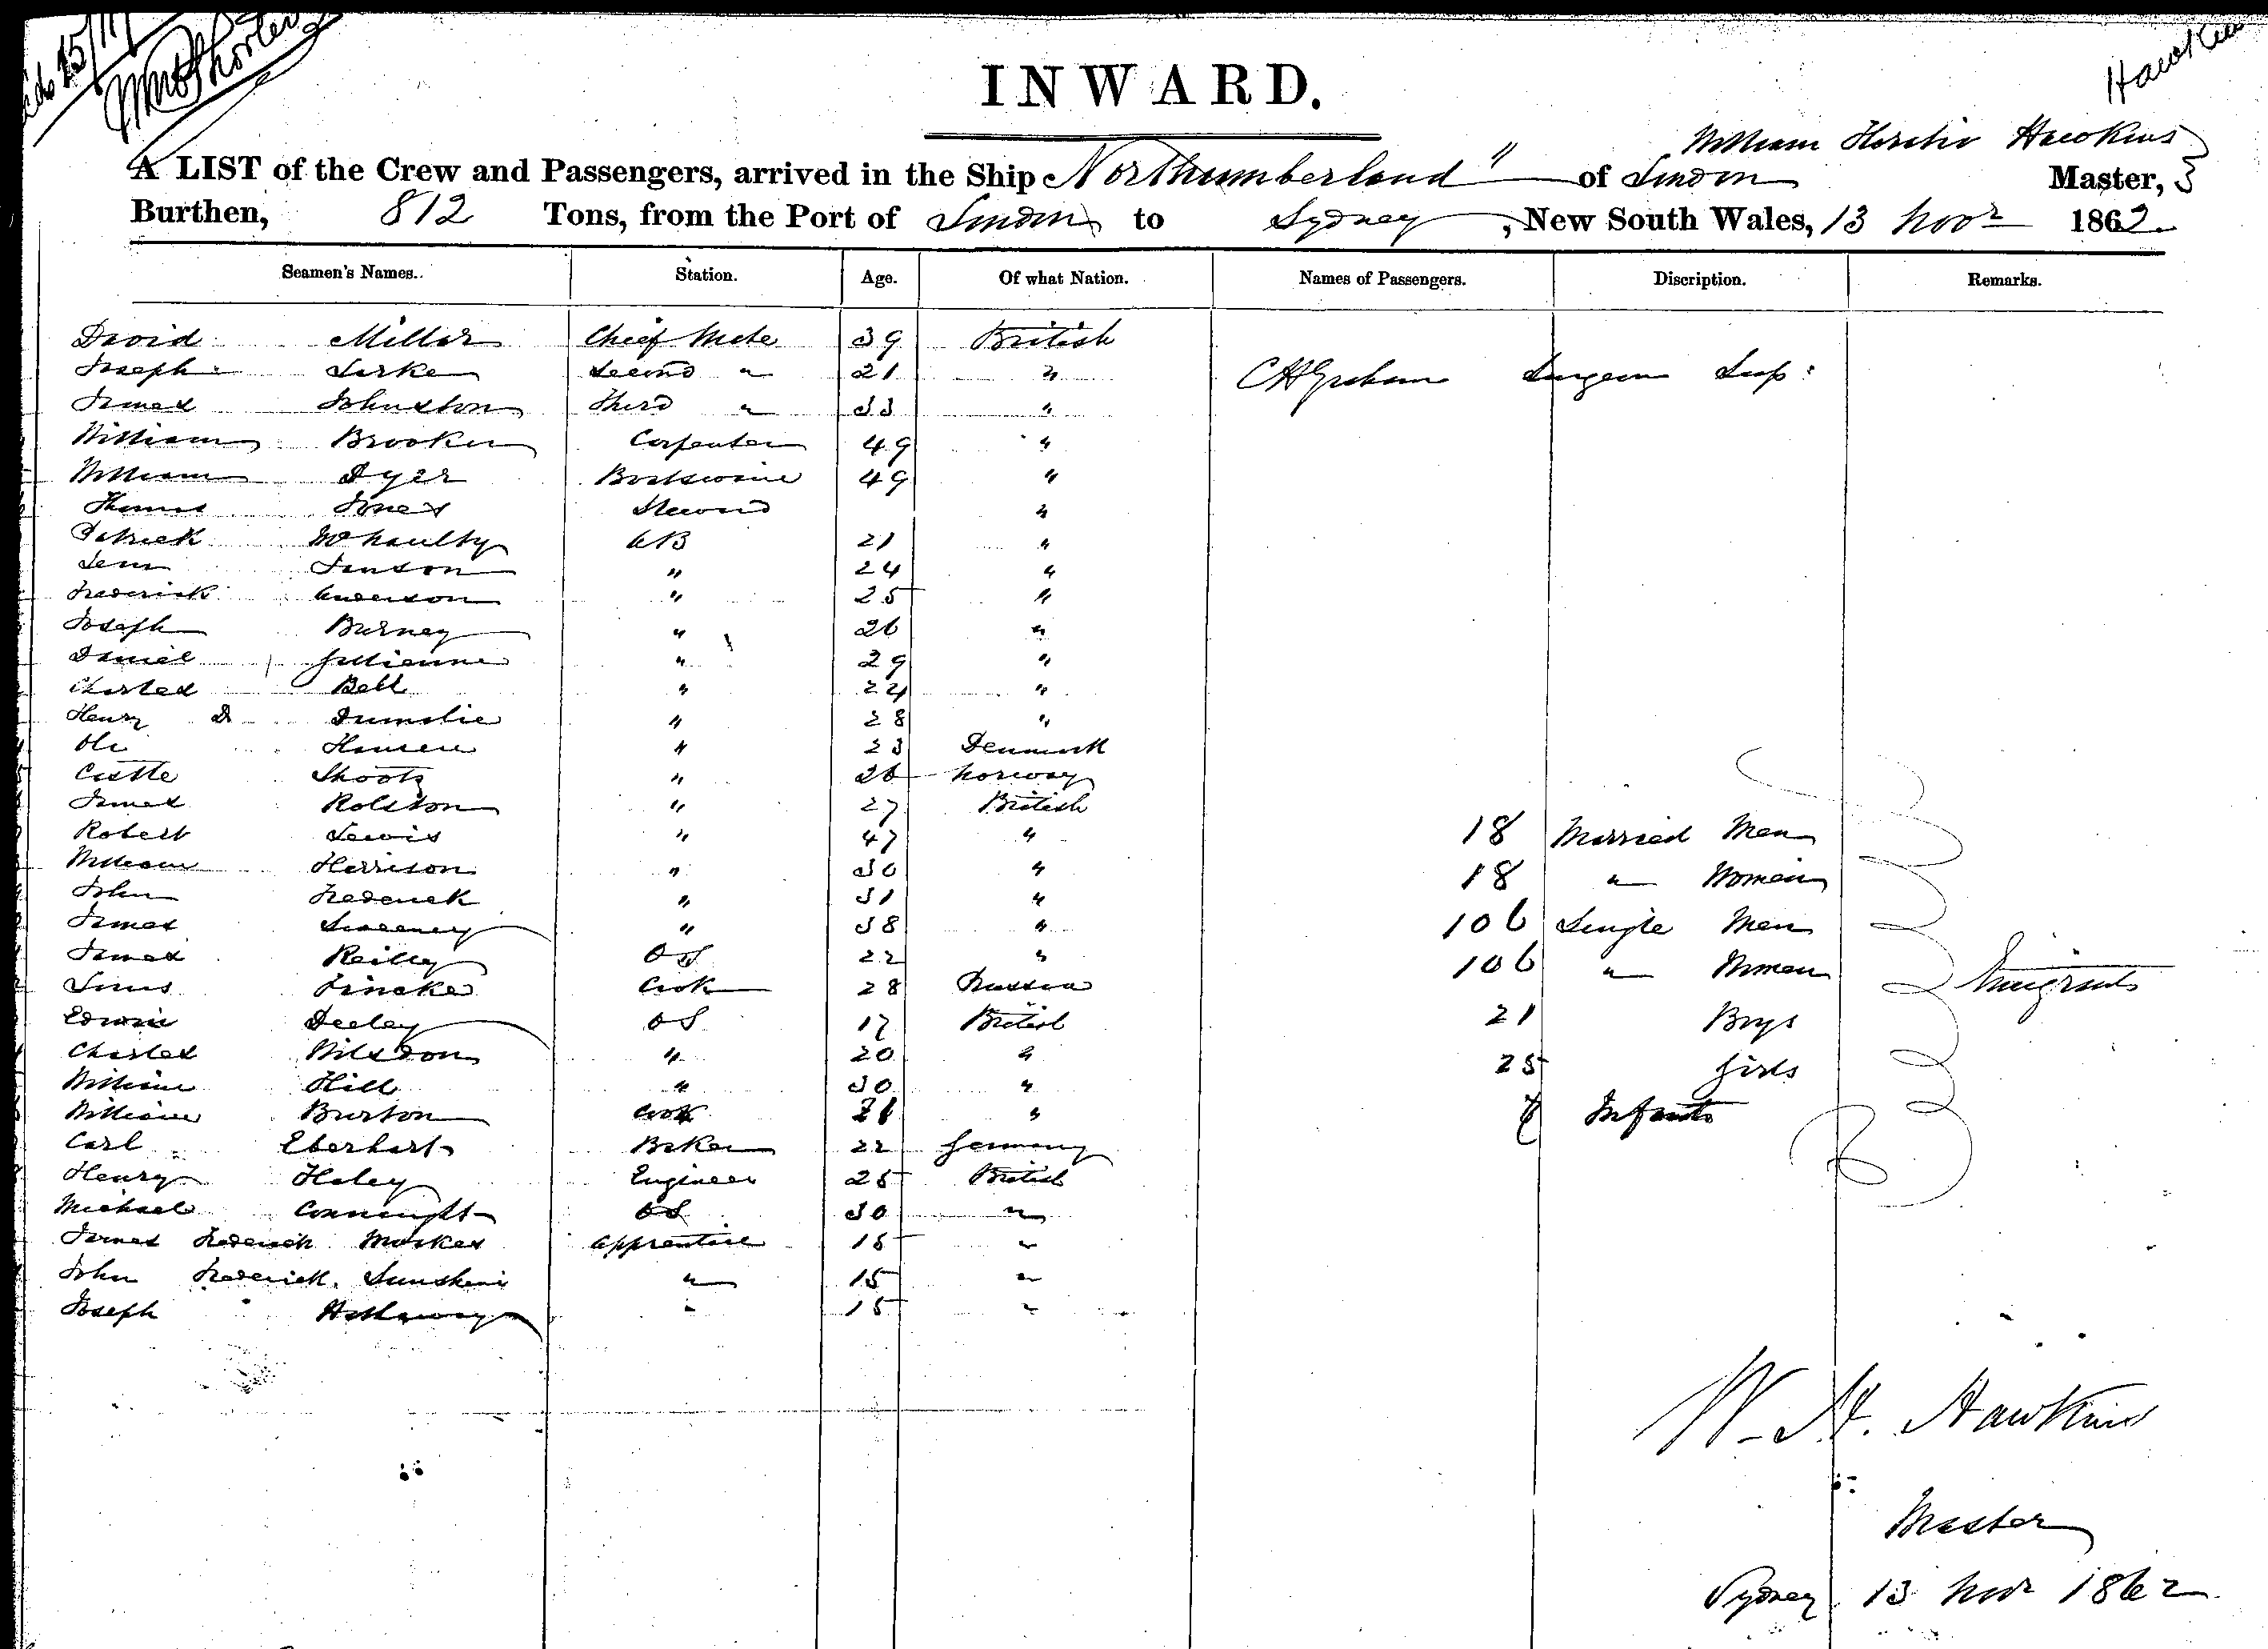 Hawkins
INWARD.
William Horatio Hawkins
A LIST of the Crew and Passengers, arrived in the Ship Northumberland " of London Master,
Burthen, 812 Tons, from the Port of London to Sydney, New South Wales, 13 Novr 1862.
Seamen's Names. Station. Age. Of what Nation. Names of Passengers. Discription. Remarks.
David Millar Chief Mate 39 British
Joseph Second " 21 " C H Graham Surgeon Sup:
James Johnston Third " 33 "
William Brooker Carpenter 49 "
William Dyer Boatswaine 49 "
Thomas Jones Steward "
Patrick AB 21 "
" 24 "
Frederick Anderson " 25 "
Joseph Burney " 26 "
Daniel " 29 "
Charles Bell " 24 "
Henry D " 28 "
Ole Hansen " 23 Denmark
" 26 Norway
James Rolston " 27 British
Robert Lewis " 47 " 18 Married Men
William Harrison " 30 " 18 " Women
John Frederick " 31 "
James Sweeney " 38 " 106 Single Men
James Reilly OS 22 " 106 " Women
Louis Fincke Cook 28 Emigrants
Edwin Deeley OS 17 British 21 Boys
Charles Wilsdon " 20 "
William Hill " 30 " 25 Girls
William Burton Cook " Infants
Carl Eberhart Baker 22 Germany
Henry Haley Engineer 25 British
Michael Connaught OS 30 "
James Frederick apprentice 15 "
John Frederick Sunshine " 15 "
Joseph Hathaway " 15 "
W. H. Hawkins
Master
Sydney 13 Novr 1862